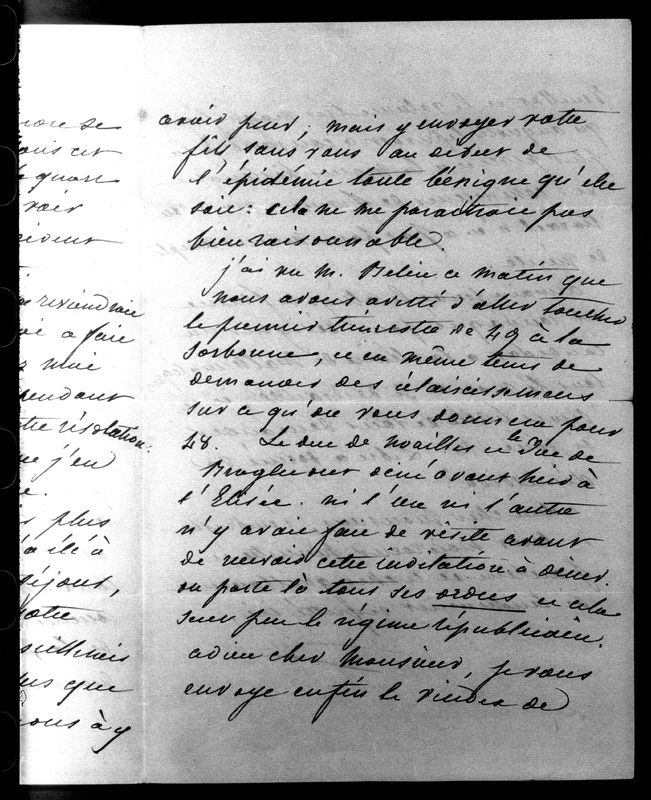 avoir peur; mais y envoyer votre
fils sans vous au début de
l'épidémie toute bénigne qu'elle
soit: cela ne me paraitrait pas
bien raisonnable.
j'ai vu M. Belin ce matin que
nous avons averti d'aller toucher
le premier trimestre de 49 à la
Sorbonne, et en même tems de
demander des éclaircissemens
sur ce qu'on vous donnera pour
48. Le duc de Noailles et le Duc de
Broglie ont diné avant hier à
l'Elisée. ni l'un ni l'autre
n'y avait fait de visite avant
de recevoir cette invitation à diner.
on porte là tous ses ordres et cela
sent peu le régime républicain.
adieu cher Monsieur, je vous
envoye enfin le
de
se
cet
quart
voir
reviendrait
a fait
moi
pendant
résolution.
j'en
plus
été à
séjour,
votre
que
nous à y